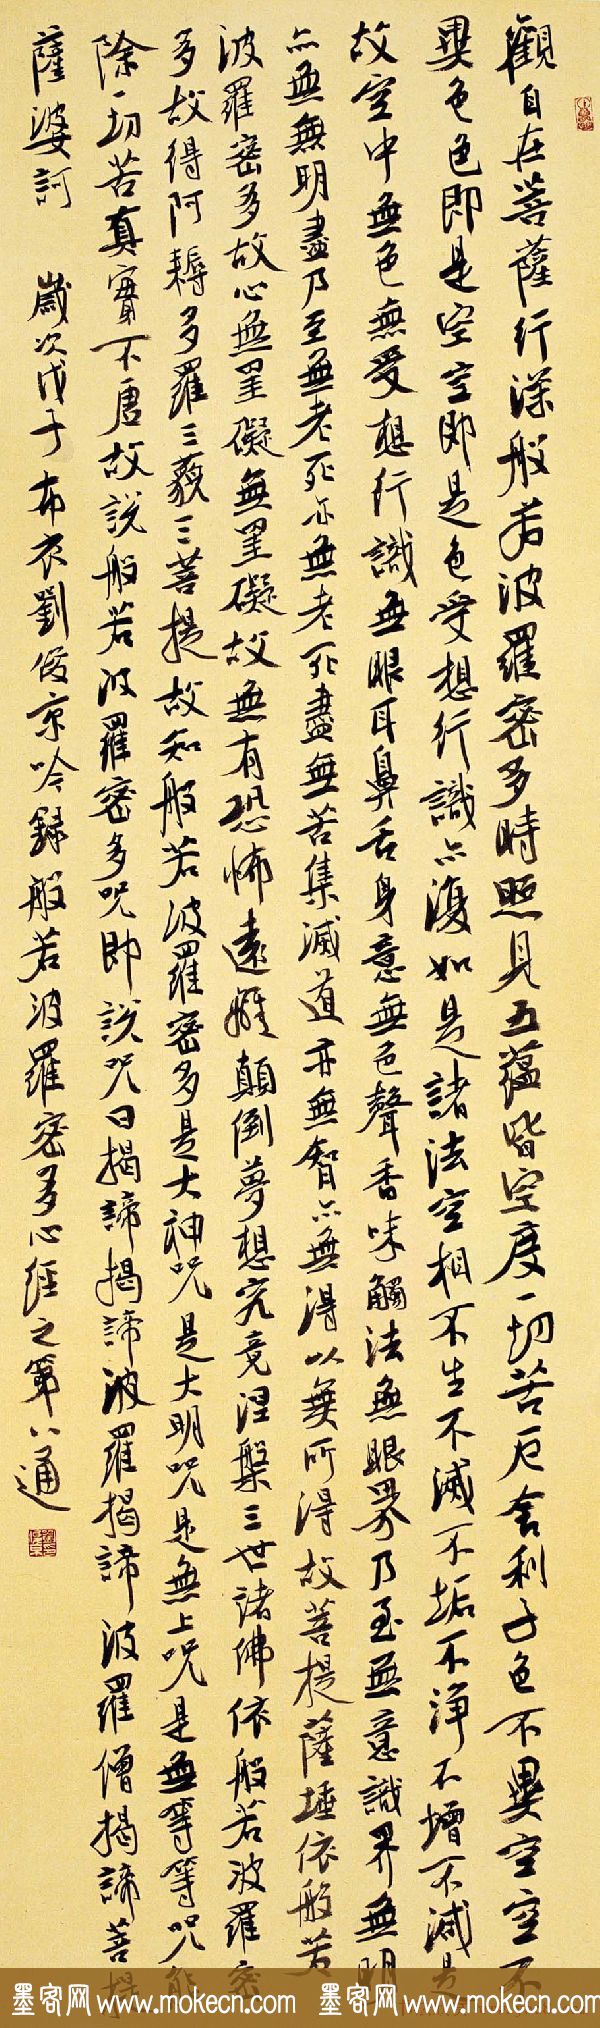 觀自在菩薩行深般若波羅密多時照見五蘊皆空度一切苦厄舍利子色不異空空不
異色色即是空空即是色受想行識亦復如是諸法空相不生不滅不垢不淨不增不減是
故空中無色無受想行識無眼耳鼻舌身意無色聲香味觸法無眼界乃至無意識界無無明
亦無無明盡乃至無老死亦無老死盡無苦集滅道亦無智亦無得以無所得故菩提薩埵依般若
波羅密多故心無罣礙無罣礙故無有恐怖遠離顛倒夢想究竟涅槃三世諸佛依般若波羅密
多故得阿耨多羅三藐三菩提故知般若波羅密多是大神咒是大明咒是無上咒是無等等咒能
除一切苦真實不虛故說般若波羅密多咒即說咒曰揭諦揭諦波羅揭諦波羅僧揭諦菩提
薩婆訶 歲次戊子布衣劉俊京吟錄般若波羅密多心經之第八通
墨客网 www.mokecn.com 墨客网 www.mokecn.com